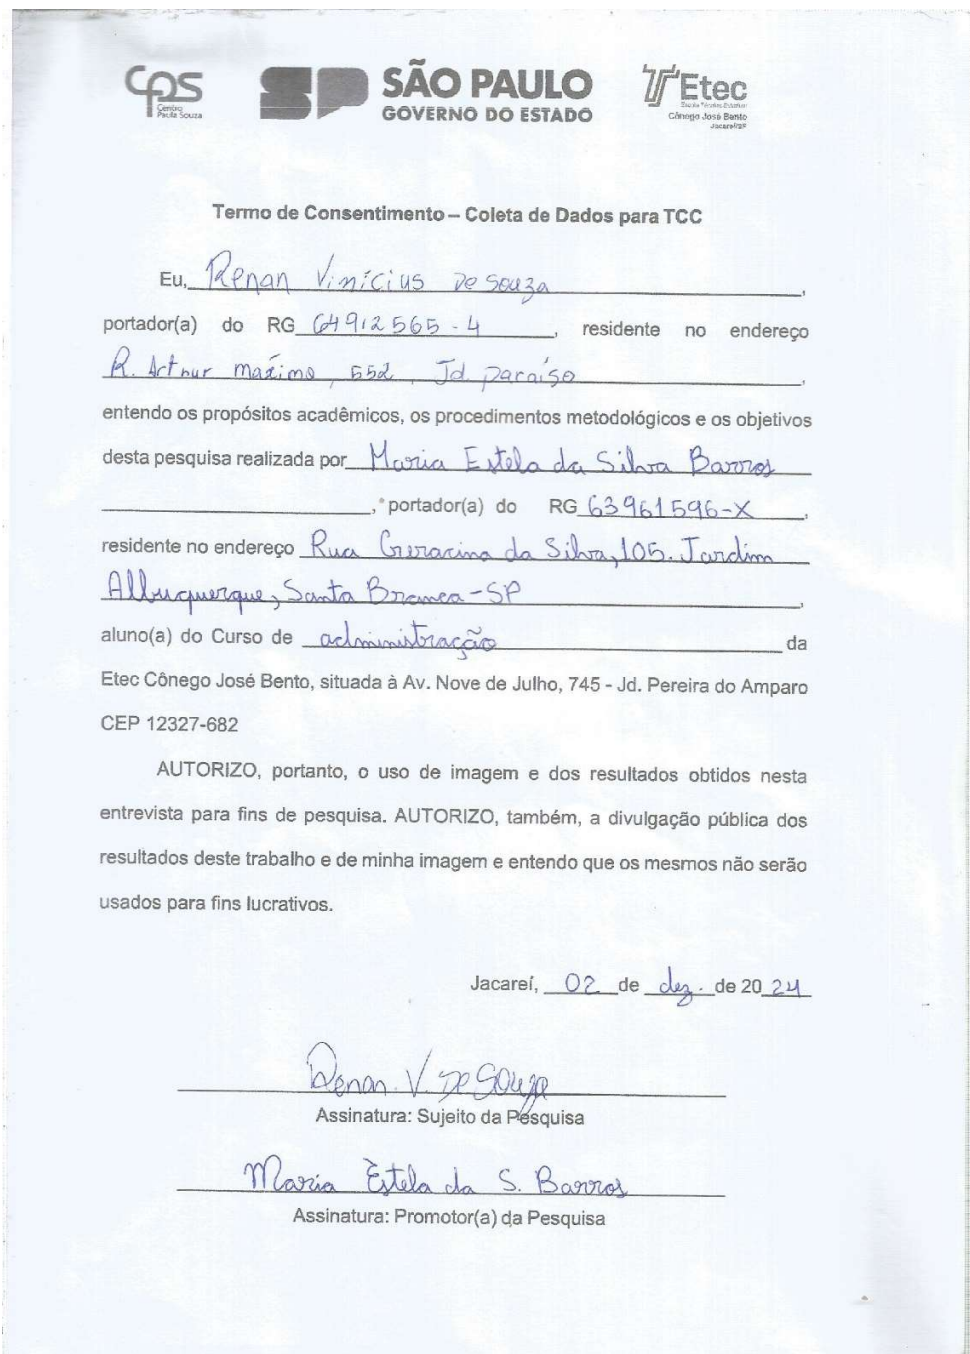 CPS
Centro
Paula Souza
SÃO PAULO
GOVERNO DO ESTADO
Etec
Cônego José Bento
Jacareí/SP
Termo de Consentimento – Coleta de Dados para TCC
Eu, Renan Vinícius De Souza,
portador(a) do RG 64912565-4, residente no endereço
R. Arthur máximo, 552, Jd. paraíso,
entendo os propósitos acadêmicos, os procedimentos metodológicos e os objetivos
desta pesquisa realizada por Maria Estela da Silva Barros
, portador(a) do RG 63961596-X,
residente no endereço Rua da Silva, 105. Jardim
Albuquerque, Santa Branca-SP,
aluno(a) do Curso de administração da
Etec Cônego José Bento, situada à Av. Nove de Julho, 745 - Jd. Pereira do Amparo
CEP 12327-682
AUTORIZO, portanto, o uso de imagem e dos resultados obtidos nesta
entrevista para fins de pesquisa. AUTORIZO, também, a divulgação pública dos
resultados deste trabalho e de minha imagem e entendo que os mesmos não serão
usados para fins lucrativos.
Jacareí, 02 de dez. de 2024
Renan V. De Souza
Assinatura: Sujeito da Pesquisa
Maria Estela da S. Barros
Assinatura: Promotor(a) da Pesquisa